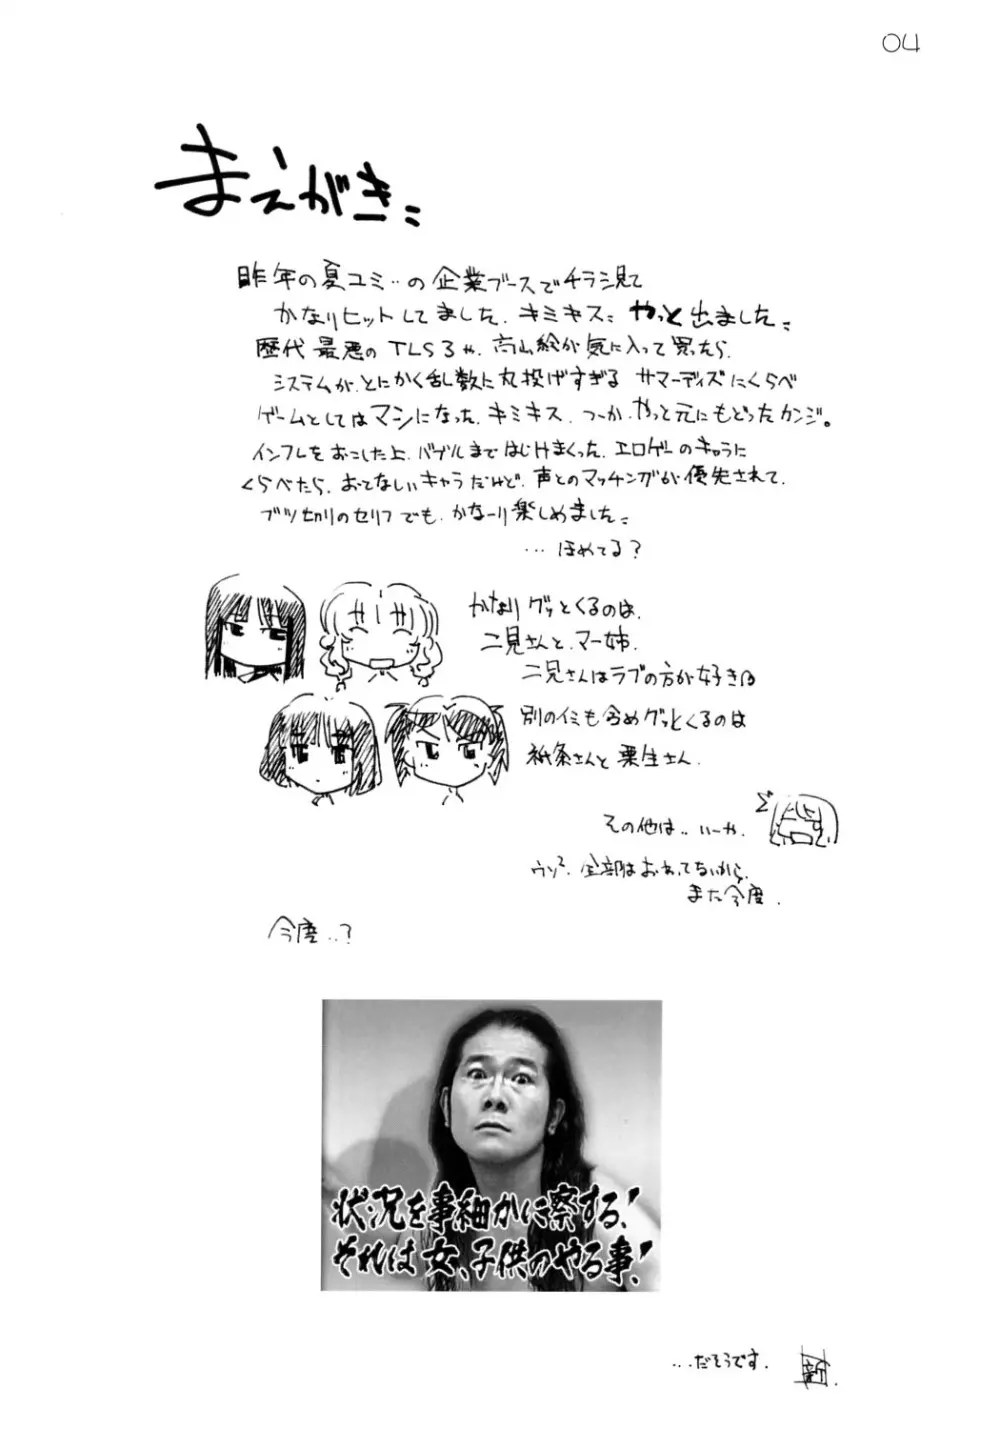 04
まえがき
昨年の夏コミ‥の企業ブースでチラシ見て
かなりヒットしてました、キミキス、やっと出ました。
歴代最悪のTLS3や、高山絵が気に入って買ったら、
システムが、とにかく乱数に丸投げすぎる サマーデイズにくらべ
ゲームとしてはマシになった、キミキス、つーか、やっと元にもどったカンジ。
インフレをおこした上、バグルまではじけまくった、エロゲーのキャラに
くらべたら、おとなしいキャラだけど、声とのマッチングが優先されて、
ブツ切りのセリフでも、かなーり楽しめました。
…ほめてる?
かなりグッとくるのは、
二見さんと、マー姉、
二見さんはラブの方が好き
別のイミも含めグッとくるのは
祇条さんと栗生さん、
その他は‥いーや、
ウソ²、全部はおわってないから、
また今度、
今度‥?
状況を事細かに察する!
それは女、子供のやる事!
…だそうです。
新